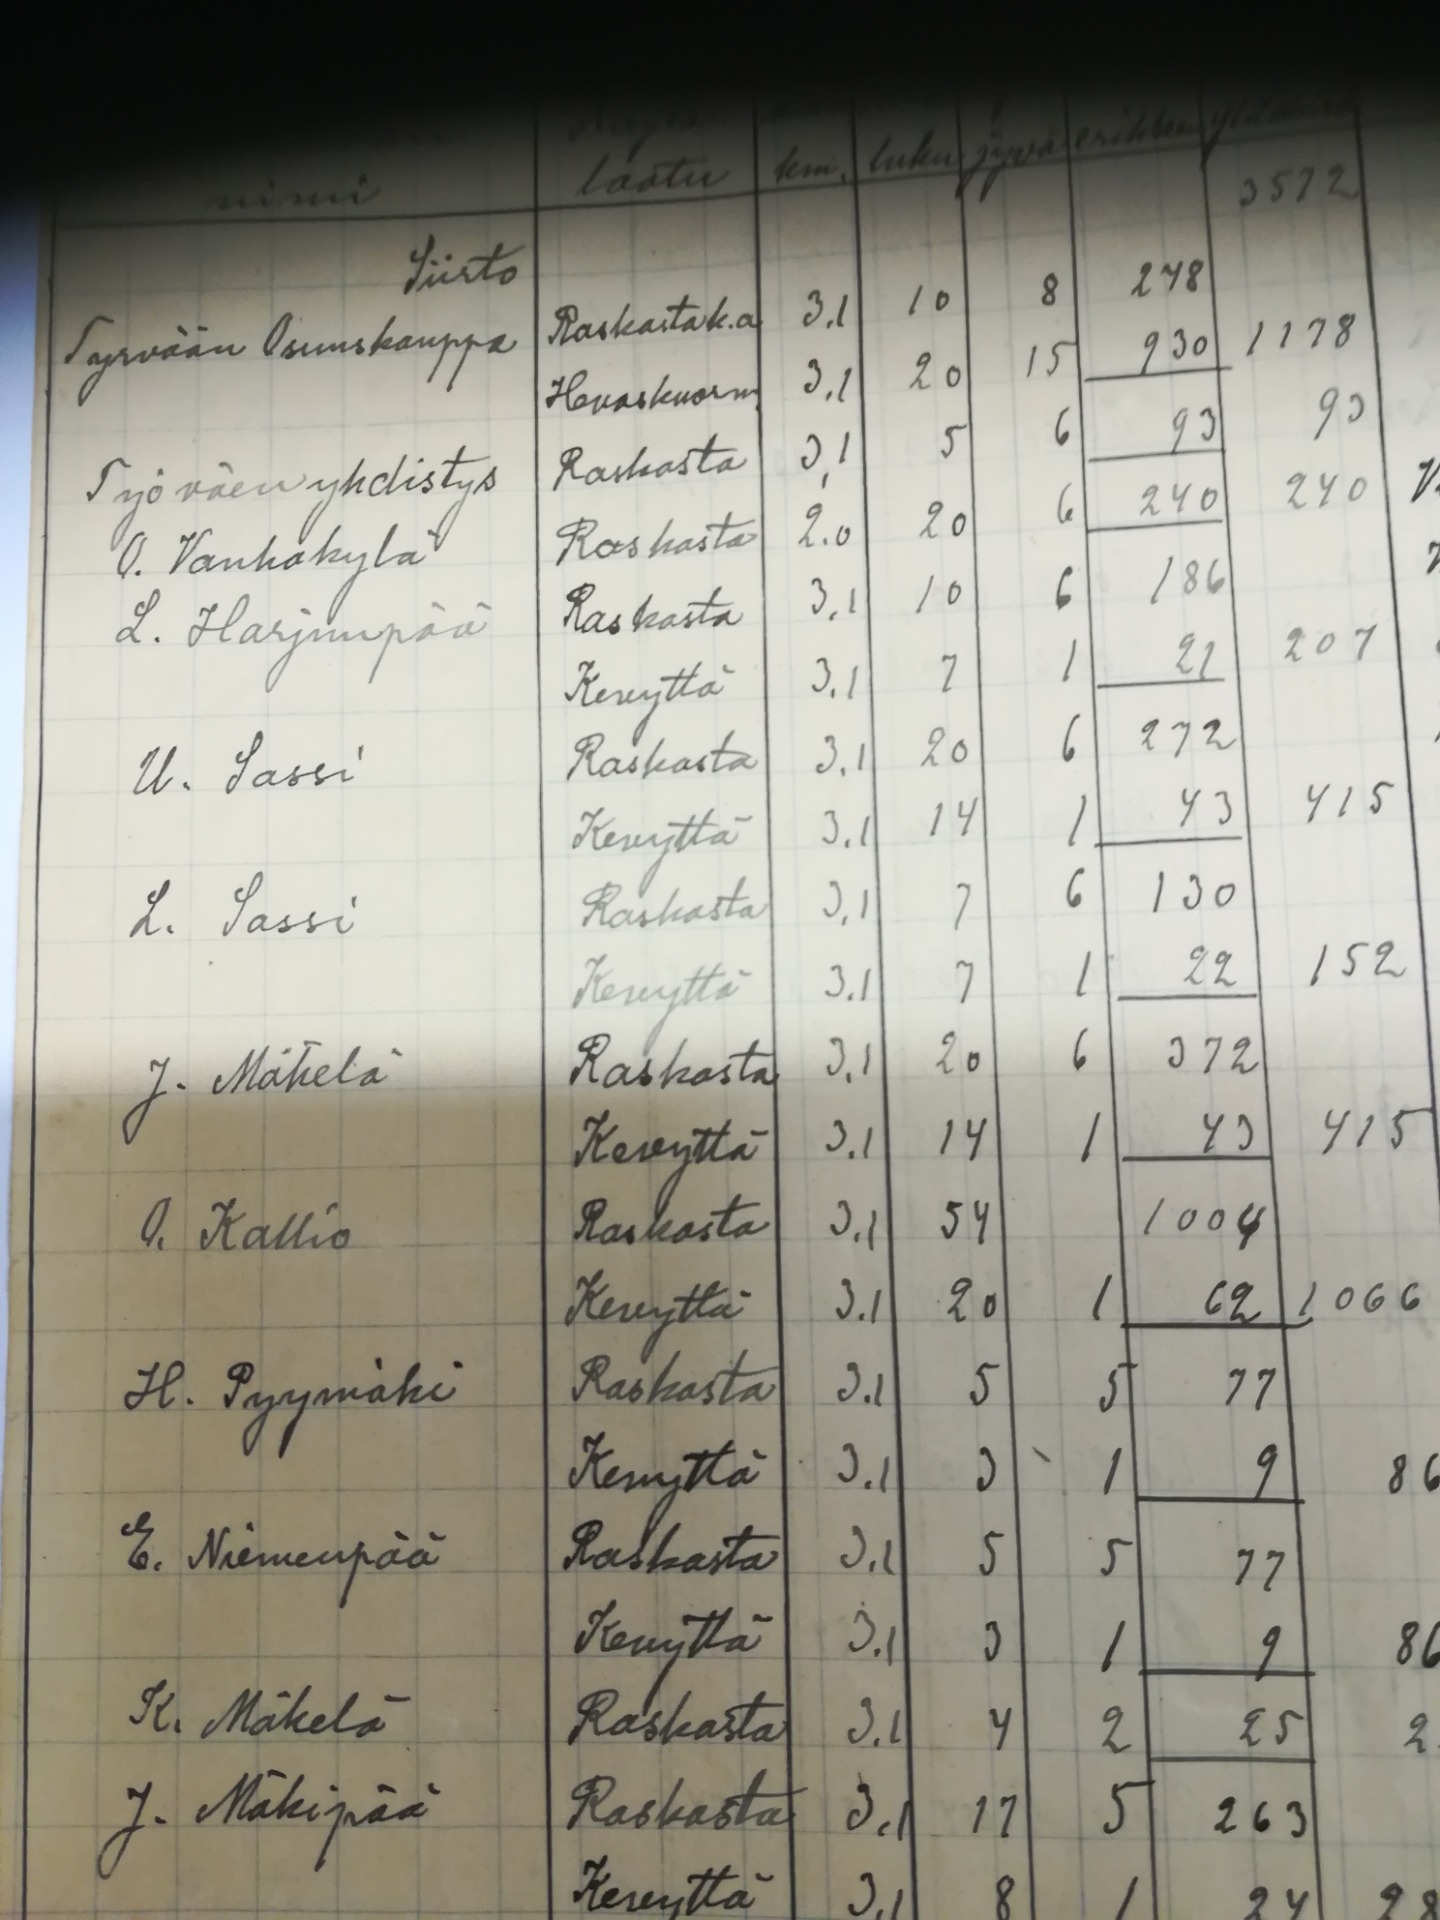 nimi laatu km. luku jyvä erikseen
3572
Siirto
Tyrvään Osuuskauppa Raskasta k.a 3,1 10 8 248
Hevoskuorm. 3,1 20 15 930 1178
Työväenyhdistys Raskasta 3,1 5 6 93 93
O. Vanhakylä Raskasta 2.0 20 6 240 240
L. Harjunpää Raskasta 3,1 10 6 186
Kevyttä 3.1 7 1 21 207
U. Sassi Raskasta 3.1 20 6 272
Kevyttä 3.1 14 1 43 415
L. Sassi Raskasta 3,1 7 6 130
Kevyttä 3.1 7 1 22 152
J. Mäkelä Raskasta 3.1 20 6 372
Kevyttä 3.1 14 1 43 415
O. Kallio Raskasta 3.1 54 1004
Kevyttä 3.1 20 1 62 1066
H. Pyymäki Raskasta 3.1 5 5 77
Kevyttä 3.1 3 1 9 86
E. Niemenpää Raskasta 3.1 5 5 77
Kevyttä 3.1 3 1 9 86
K. Mäkelä Raskasta 3.1 4 2 25 2
J. Mäkipää Raskasta 3.1 17 5 263
Kevyttä 3.1 8 1 24 28